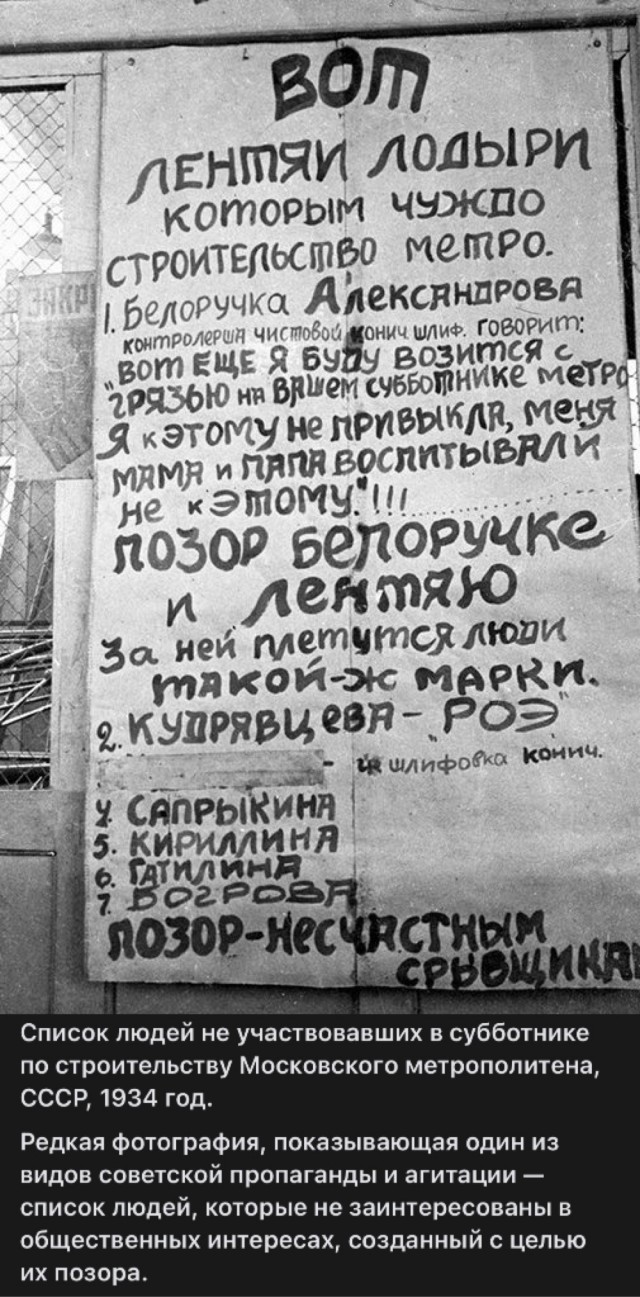 ВОТ
ЛЕНТЯИ ЛОДЫРИ
КОТОРЫМ ЧУЖДО
СТРОИТЕЛЬСТВО МЕТРО.
1. БЕЛОРУЧКА АЛЕКСАНДРОВА
КОНТРОЛЕРША ЧИСТОВОЙ КОНИЧ. ШЛИФ. ГОВОРИТ:
„ВОТ ЕЩЕ Я БУДУ ВОЗИТСЯ С
ГРЯЗЬЮ НА ВАШЕМ СУББОТНИКЕ МЕТРО
Я К ЭТОМУ НЕ ПРИВЫКЛА, МЕНЯ
МАМА И ПАПА ВОСПИТЫВАЛИ
НЕ К ЭТОМУ."!!!
ПОЗОР БЕЛОРУЧКЕ
И ЛЕНТЯЮ
ЗА НЕЙ ПЛЕТУТСЯ ЛЮДИ
ТАКОЙ-Ж МАРКИ.
2. КУДРЯВЦЕВА - „РОЭ"
- ШЛИФОВКА КОНИЧ.
4. САПРЫКИНА
5. КИРИЛЛИНА
6. ГАТИЛИНА
7. БОГРОВА
ПОЗОР-НЕСЧАСТНЫМ
СРЫВЩИКАМ
ЗАКР
Список людей не участвовавших в субботнике
по строительству Московского метрополитена,
СССР, 1934 год.
Редкая фотография, показывающая один из
видов советской пропаганды и агитации —
список людей, которые не заинтересованы в
общественных интересах, созданный с целью
их позора.